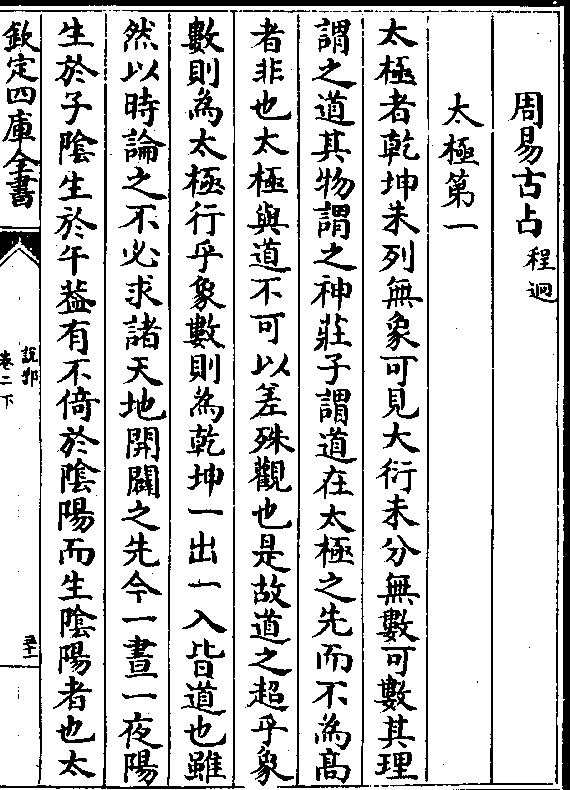 周易古占 程迥
太極第一
太極者乾坤未列無象可見大衍未分無數可數其理
謂之道其物謂之神莊子謂道在太極之先而不為高
者非也太極與道不可以差殊觀也是故道之超乎象
數則為太極行乎象數則為乾坤一出一入皆道也雖
然以時論之不必求諸天地開闢之先今一晝一夜陽
生於子陰生於午葢有不倚於陰陽而生陰陽者也太
欽定四庫全書
說郛
卷二下